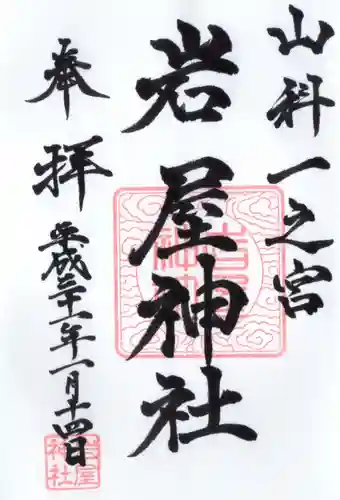 山科一之宮
岩屋神社
奉拝
平成三十一年一月十四日
岩屋
神社